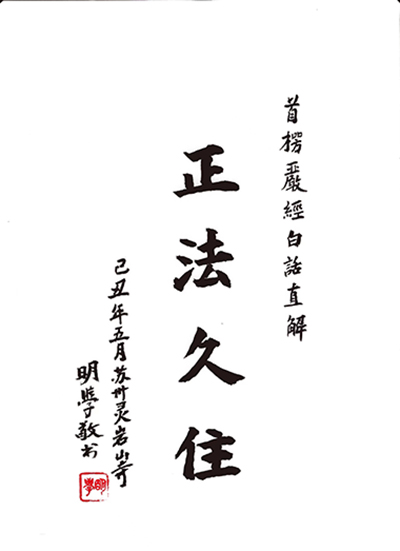 首楞嚴經白話直解
正法久住
己丑年五月苏州灵岩山寺
明學敬书
明學